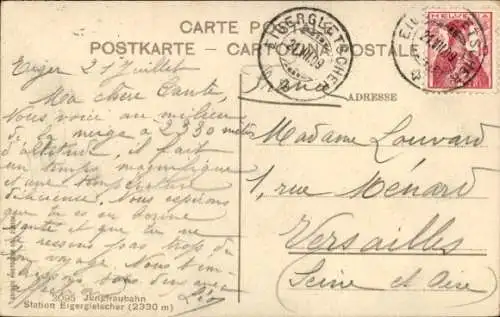 CARTE POSTALE
POSTKARTE - CARTOLINA POSTALE
EIGERGLETSCHER
21.VII.09
HELVETIA
ADRESSE
Eiger 21 Juillet
Ma chère Tante,
Nous voici au milieu
de la neige à 2330 mètres
d'altitude, il fait
un temps magnifique
et une température
Nous espérons
que tu es en bonne
santé et que tu ne
te ressens pas trop du
voyage. Nous t'em-
brassons
Léo
France
Madame Louvard
1, rue Ménard
Versailles
(Seine et Oise)
2095 Jungfraubahn
Station Eigergletscher (2330 m)